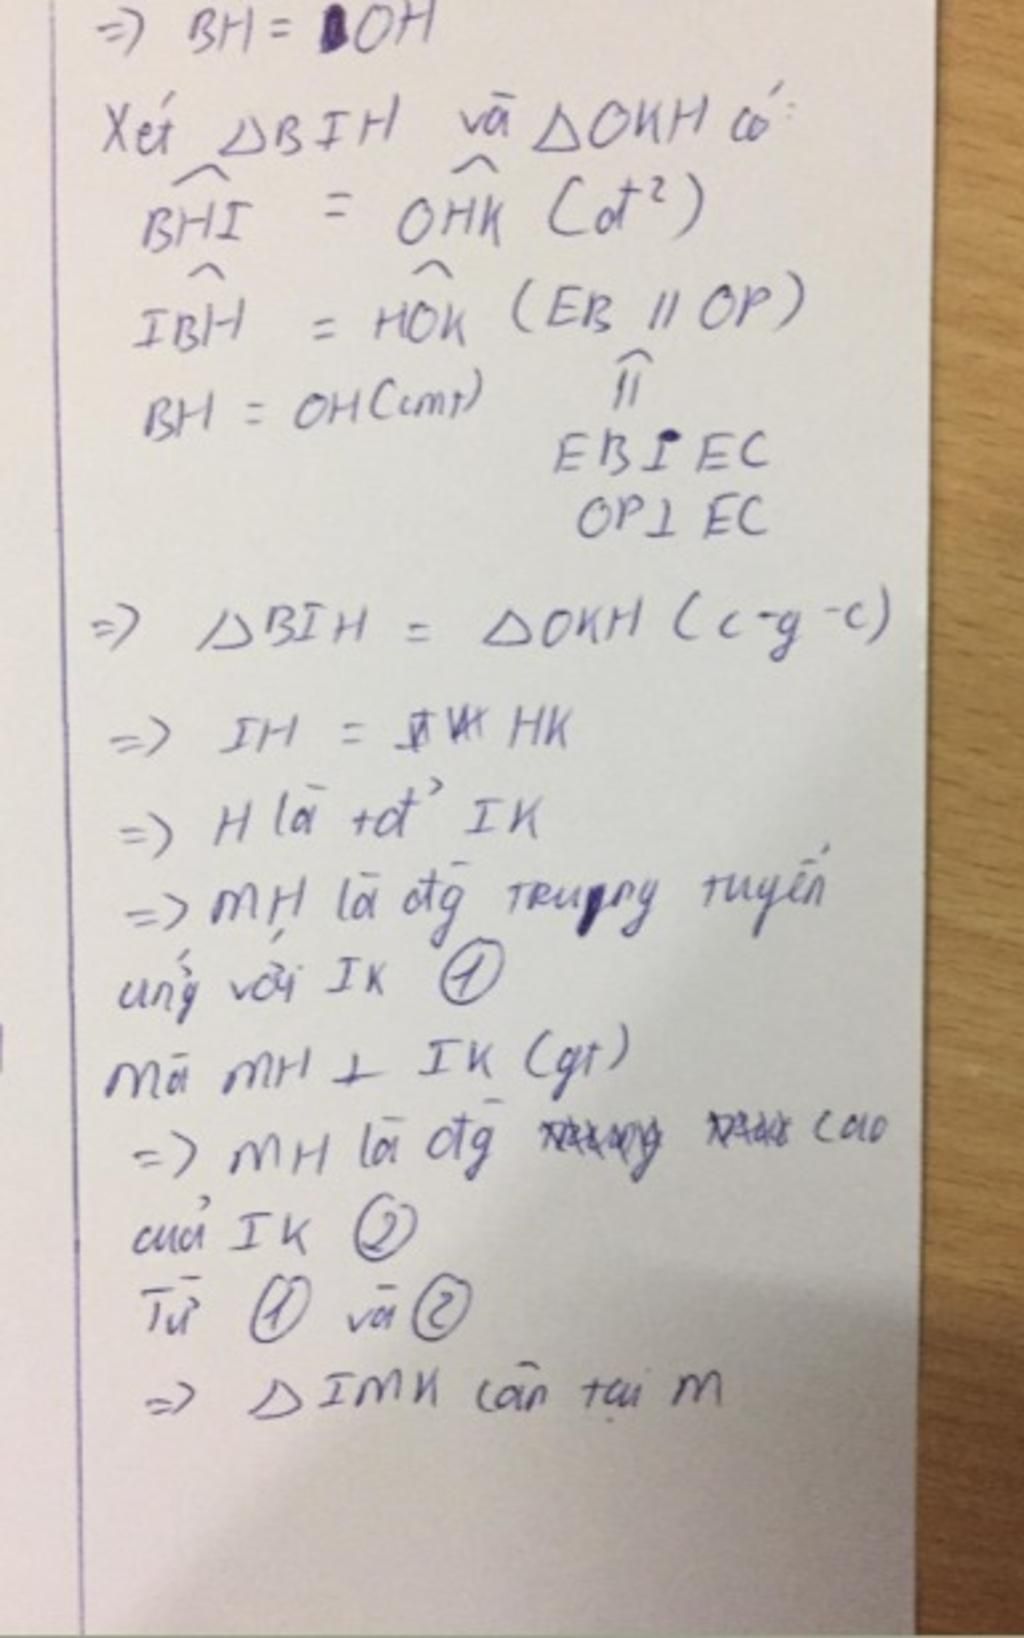 => BH = OH
Xét ΔBIH và ΔOKH có:
BHI = OHK (đ²)
IBH = HOK (EB // OP)
BH = OH (cmt)
⇑
EB⊥EC
OP⊥ EC
=> ΔBIH = ΔOKH (c-g-c)
=> IH = HK
=> H là tđ' IK
=> MH là đg trung tuyến
ứng với IK ①
Mà MH ⊥ IK (gt)
=> MH là đg cao
của IK ②
Từ ① và ②
=> ΔIMK cân tại M